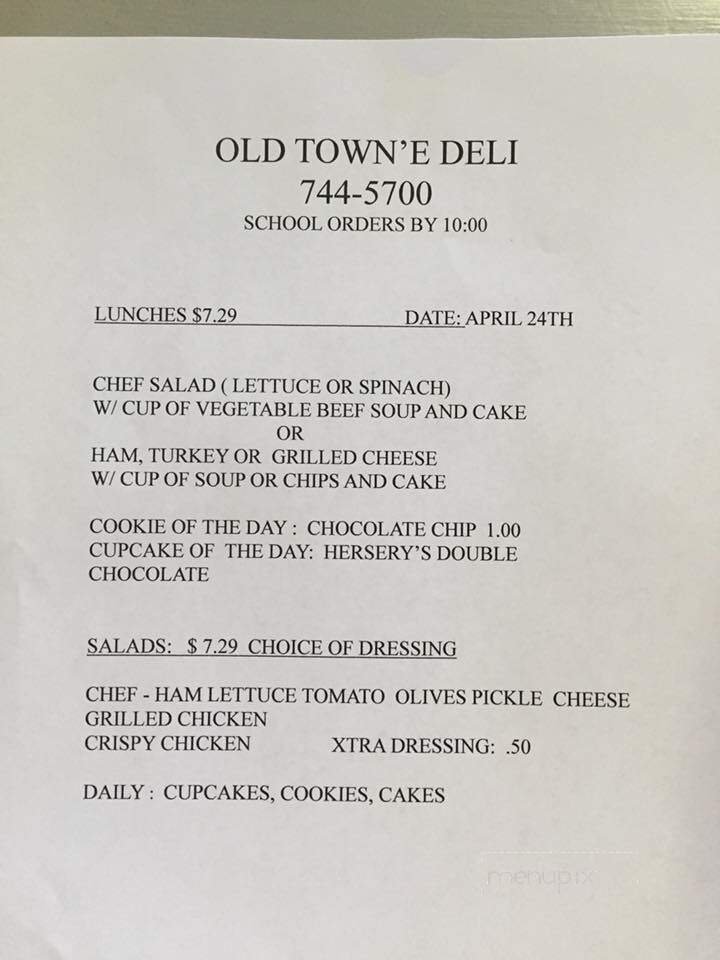 OLD TOWN'E DELI
744-5700
SCHOOL ORDERS BY 10:00
LUNCHES $7.29 DATE: APRIL 24TH
CHEF SALAD ( LETTUCE OR SPINACH)
W/ CUP OF VEGETABLE BEEF SOUP AND CAKE
OR
HAM, TURKEY OR GRILLED CHEESE
W/ CUP OF SOUP OR CHIPS AND CAKE
COOKIE OF THE DAY : CHOCOLATE CHIP 1.00
CUPCAKE OF THE DAY: HERSERY'S DOUBLE
CHOCOLATE
SALADS: $ 7.29 CHOICE OF DRESSING
CHEF - HAM LETTUCE TOMATO OLIVES PICKLE CHEESE
GRILLED CHICKEN
CRISPY CHICKEN XTRA DRESSING: .50
DAILY : CUPCAKES, COOKIES, CAKES
menupix